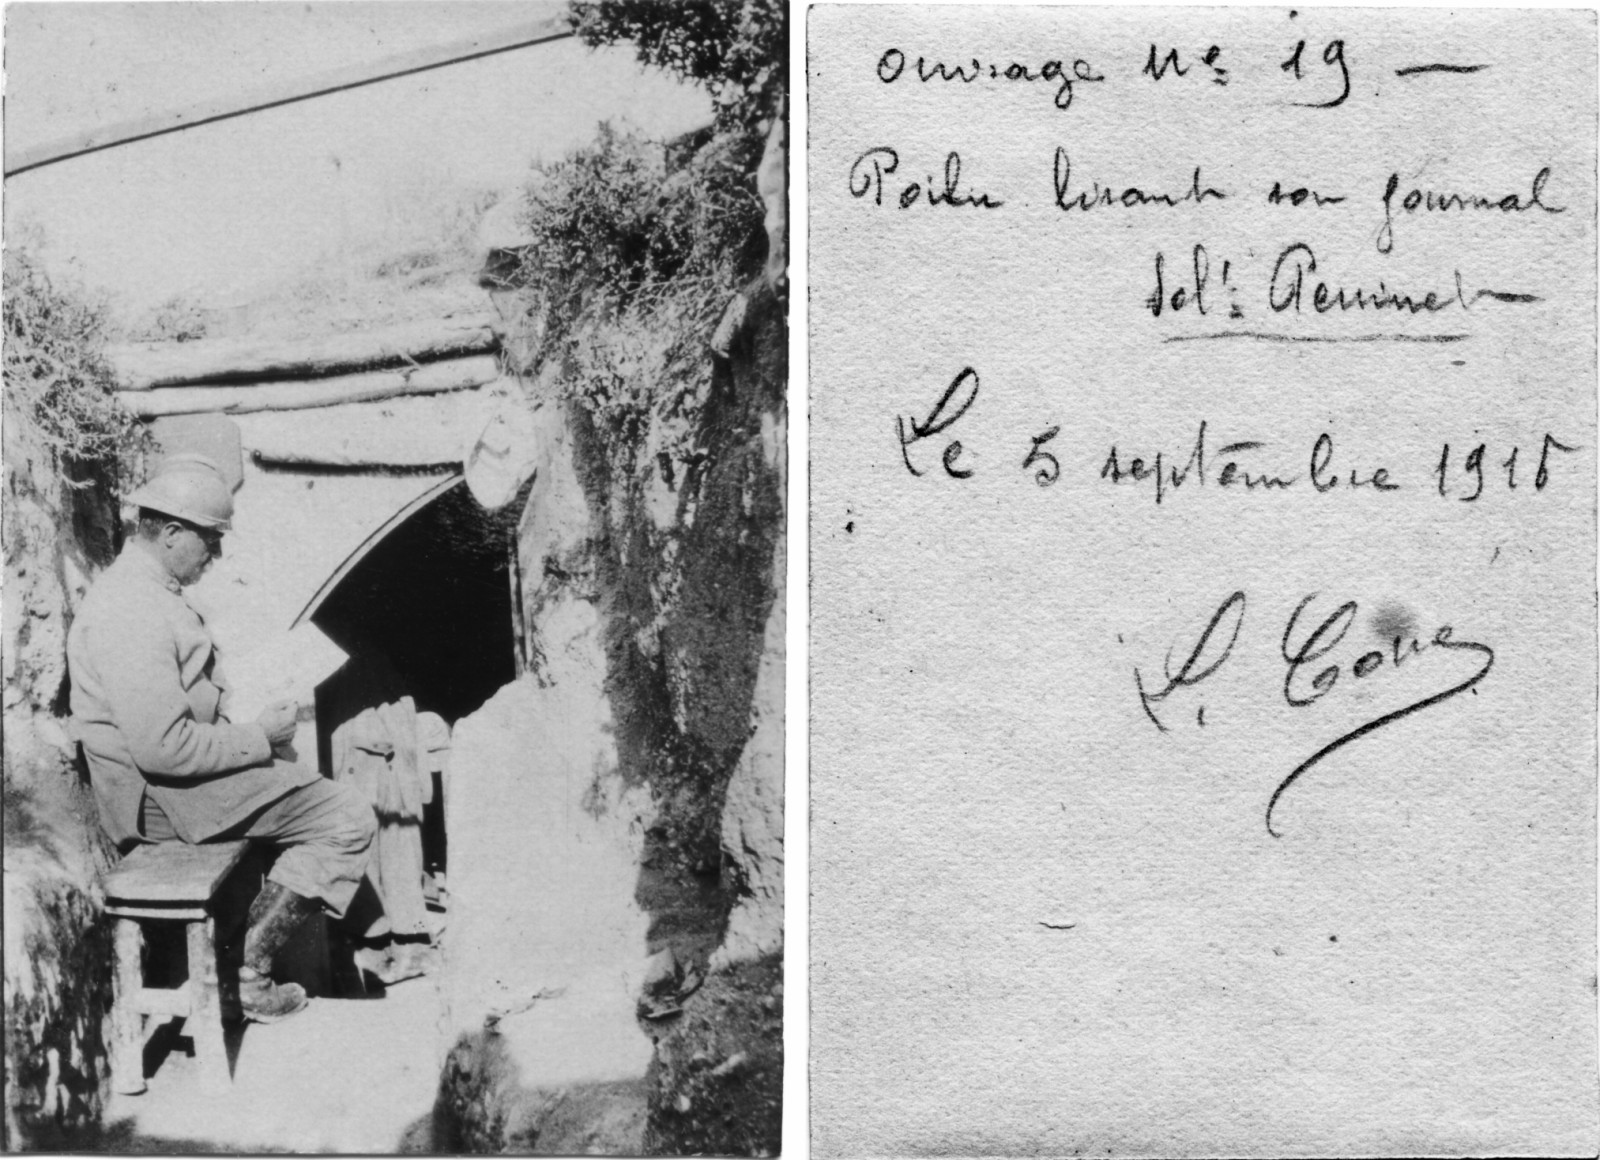 ouvrage No 19 —
Poilu lisant son journal
Solt Perrinet
Le 5 septembre 1915
L.